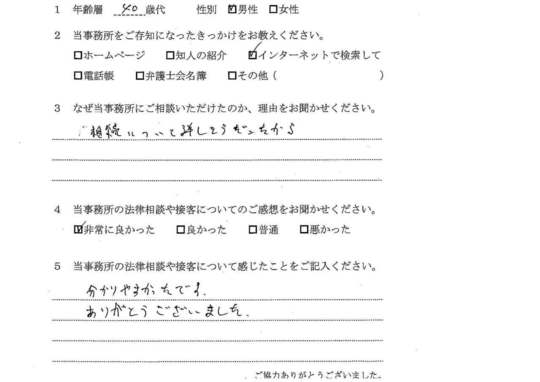 1 年齢層 40 歳代 性別 ☑男性 □女性
2 当事務所をご存知になったきっかけをお教えください。
□ホームページ □知人の紹介 ☑インターネットで検索して
□電話帳 □弁護士会名簿 □その他( )
3 なぜ当事務所にご相談いただけたのか、理由をお聞かせください。
相続について詳しそうだったから
4 当事務所の法律相談や接客についてのご感想をお聞かせください。
☑非常に良かった □良かった □普通 □悪かった
5 当事務所の法律相談や接客について感じたことをご記入ください。
分かりやすかったです。
ありがとうございました。
ご協力ありがとうございました。